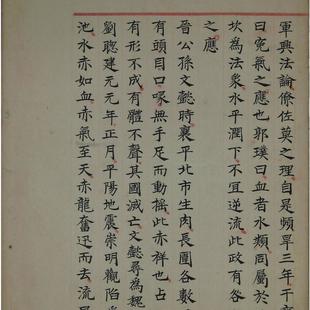 軍興法論僚佐莫之理自是頻旱三年干寶
曰冤氣之應也郭璞曰血者水類同屬於
坎為法象水平潤下不宜逆流此政有咎
之應
晉公孫文懿時襄平北市生肉長圍各數
有頭目口喙無手足而動搖此赤祥也占
有形不成有體不聲其國滅亡文懿尋為魏
劉聰建元元年正月平陽地震崇明觀陷為
池水赤如血赤氣至天赤龍奮迅而去流星